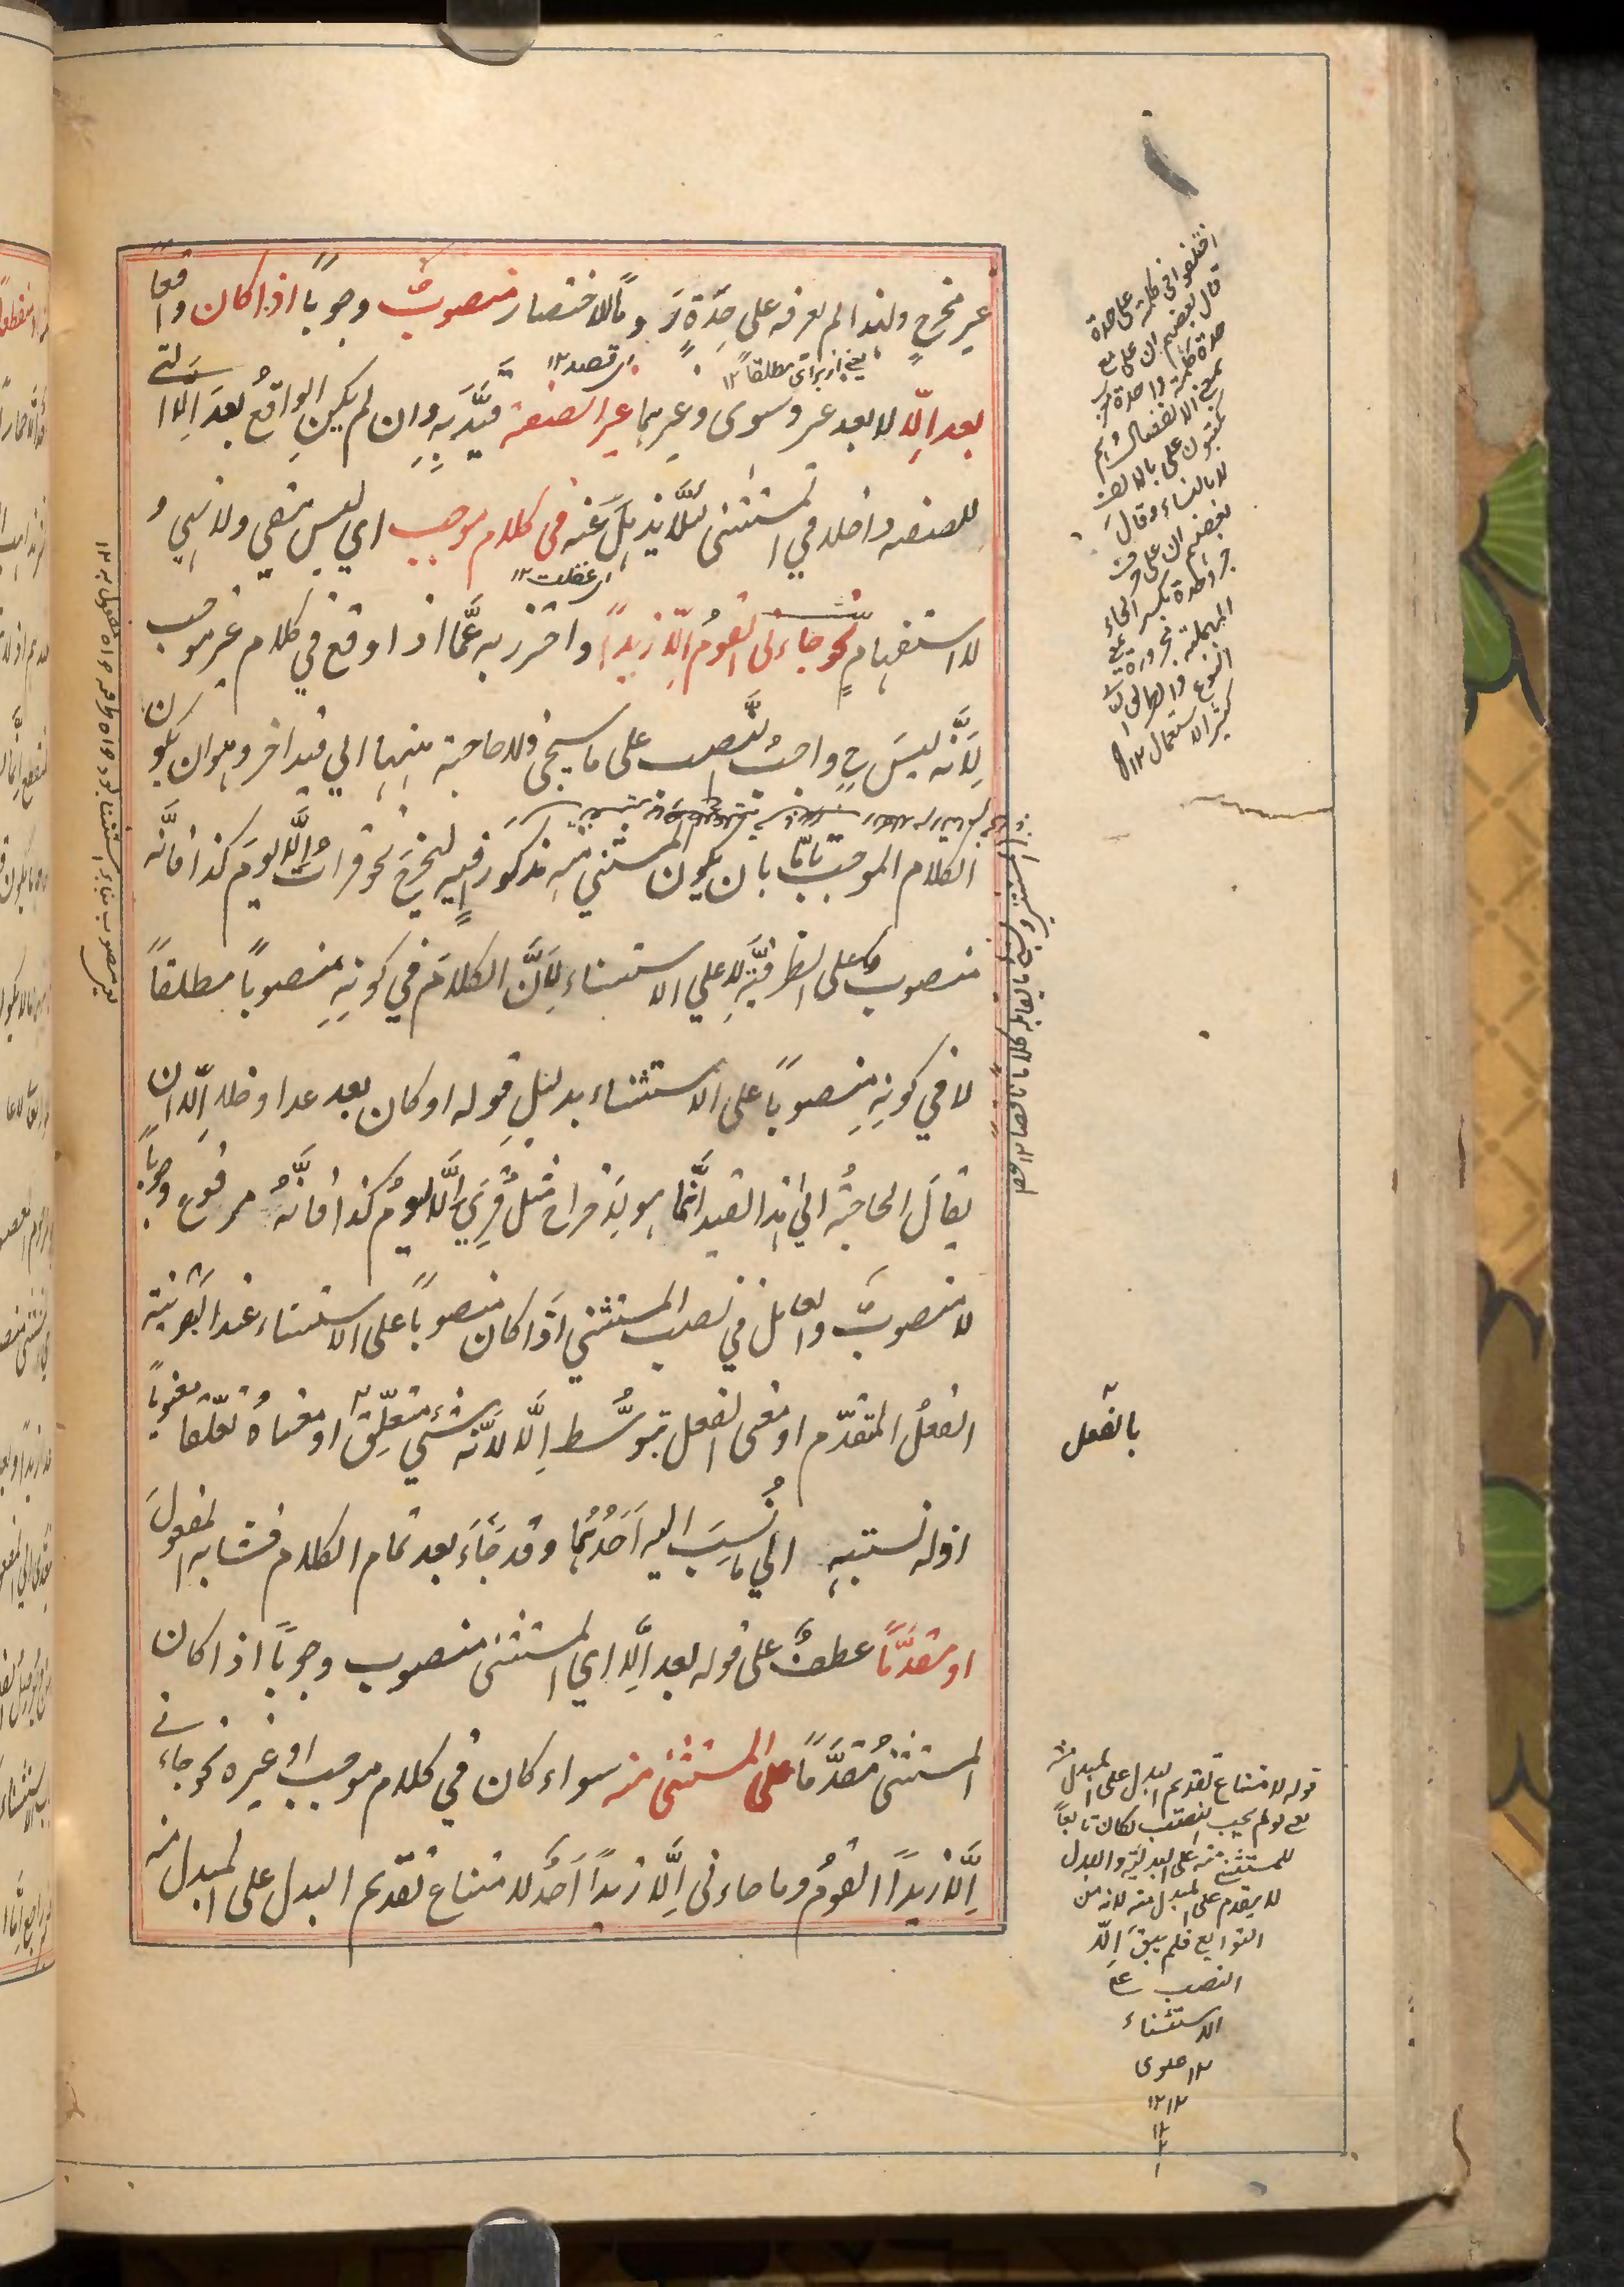 غير مخرج ولهذا لم يعرفه على حدة روماً للاختصار منصوبٌ وجوباً اذا كان واقعاً
بعد اِلّا لا بعد غير وسوى وغيرهما غير الصفة قيّد به وان لم يكن الواقع بعد اِلّا التي
للصفة داخلا في المستثنى لئلّا يذهل عنه فى كلام موجب اي ليس بنفي ولا نهي و
لا استفهام نحو جاءنى القومُ اِلّا زيداً واحترز به عمّا اذا وقع في كلام غير موجب
لِاَنّه ليسَ ح واجبُ النّصب على ما سيجئ ولا حاجة ههنا الي قيد اخر وهو ان يكون
الكلام الموجب تامّا بان يكون المستثنى منه مذكوراً فيه ليخرجَ نحو قرات اِلّا يومَ كذا فانّه
منصوب على الظرفيّة لا علي الاستثناء لِاَنّ الكلامَ في كونِهِ منصوباً مطلقاً
لا في كونِهِ منصوباً على الاستثناء بدليلِ قوله او كان بعد عدا وخلا اِلّا ان
يقالَ الحاجةُ الي هذا القيد انّما هو لاخراج مثل قُرِيَ اِلّا يومُ كذا فانّهُ مرفوع وجوباً
لا منصوبٌ والعامل في نصب المستثني اذا كان منصوباً على الاستثناء عند البصرية
الفعلُ المتقدّم او معنى الفعل بتوسُّط اِلّا لانّه شيء متعلّق او معناهُ تعلّقا معنوياً
بالفعل
اذ له نسبة الي ما نُسِبَ اليه اَحَدُهُما وقد جَاءَ بعد تمام الكلام فشابه المفعولَ
او مقدّماً عطفٌ على قوله بعد اِلّا اي المستثنى منصوب وجوباً اذا كان
المستثنى مُقدَّماً على المستثنى منه سواء كان في كلام موجب او غيره نحو جاءنى
اِلّا زيداً القومُ وما جاءنى اِلّا زيداً اَحَدٌ لامتناع تقديم البدل على المبدل منه
اى قصد ١٢
اى غفلت ١٢
اختلفوا فى كلمة على حدة
قال بعضهم ان على مع
حدة كلمة واحدة
بمعنى الانفصال
على بالالف
لا بالتاء وقال
بعضهم ان على حرف
جر وحدة بكسر الحاء
المهملة مجرورة
كثير الاستعمال ١٢
قوله لامتناع تقديم البدل على المبدل منه
يعنى لو لم يجب النصب لكان تابعاً
للمستثنى منه على البدليّة والبدل
لا يقدم على المبدل منه لانه من
التوابع فلم يبق اِلّا
النصب على
الاستثناء
١٢
١٢١٢
١٢